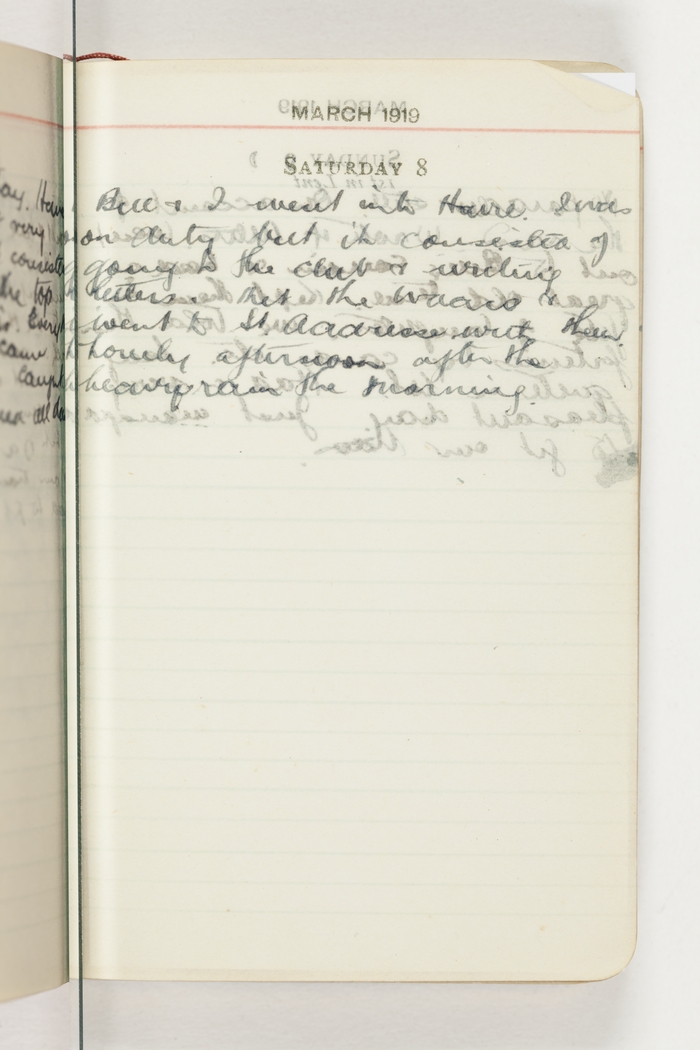 MARCH 1919
SATURDAY 8
Bill & I went into Havre. I was
on duty but it consisted of
going to the club & writing
letters. Met the Waacs &
went to St Addresse with them.
Lovely afternoon after the
heavy rain the morning.